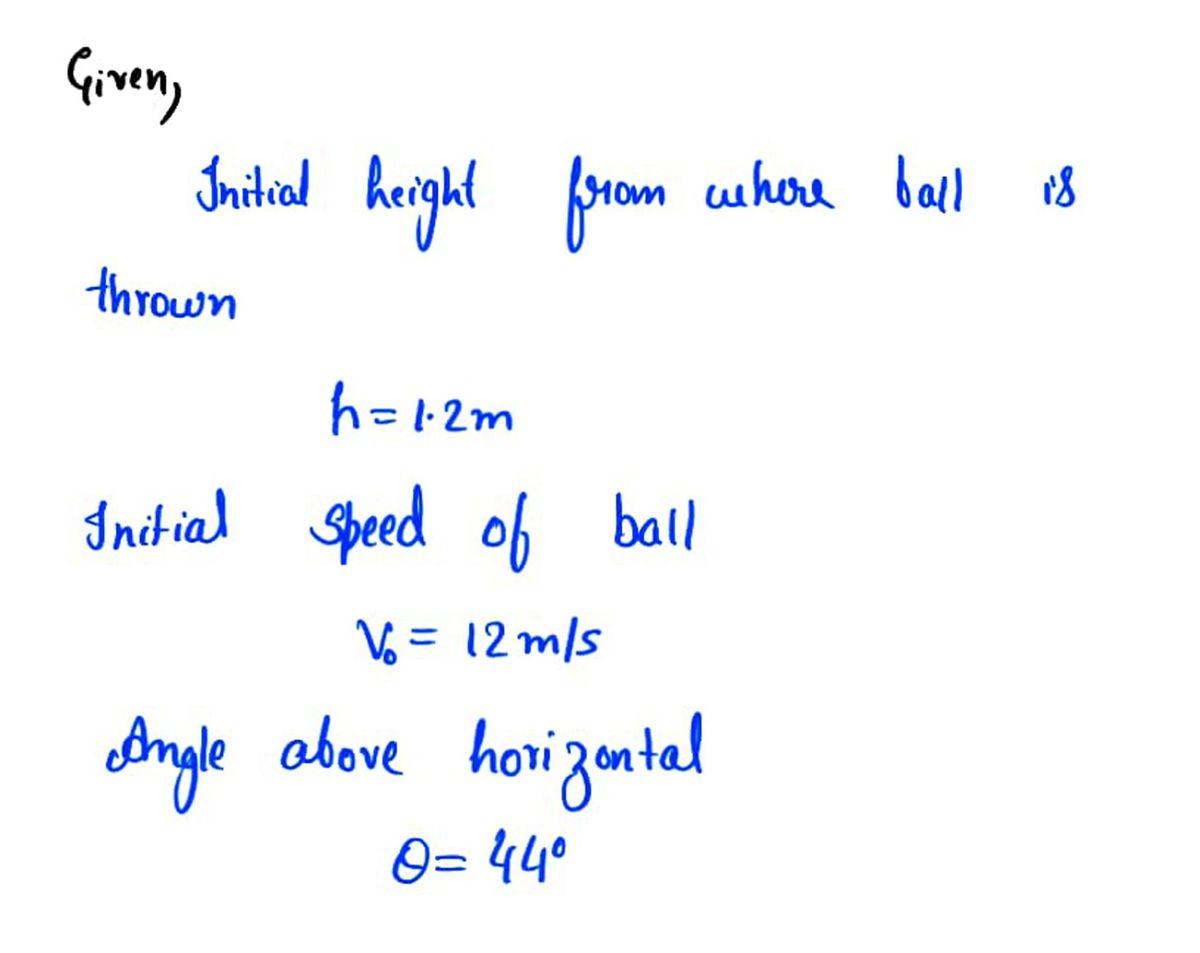 Given,
Initial height from where ball is
thrown
h = 1.2m
Initial speed of ball
V₀ = 12 m/s
Angle above horizontal
θ = 44°